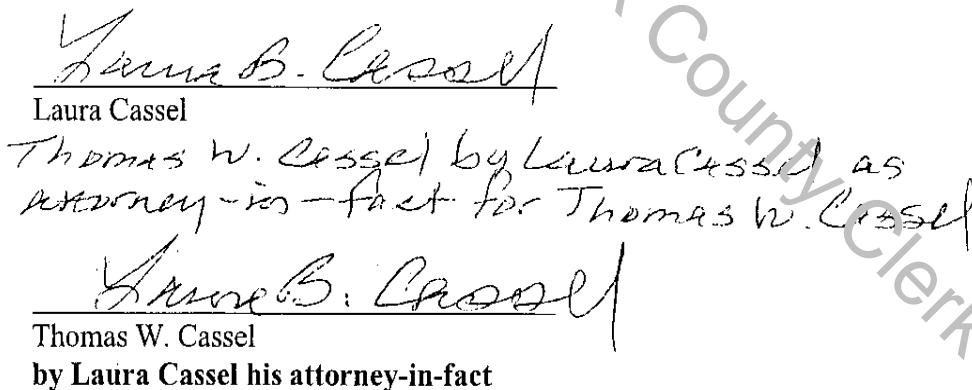 Laura B. Cassel
Laura Cassel
Thomas W. Cassel by Laura Cassel as
attorney-in-fact for Thomas W. Cassel
Laura B. Cassel
Thomas W. Cassel
by Laura Cassel his attorney-in-fact
County Clerk